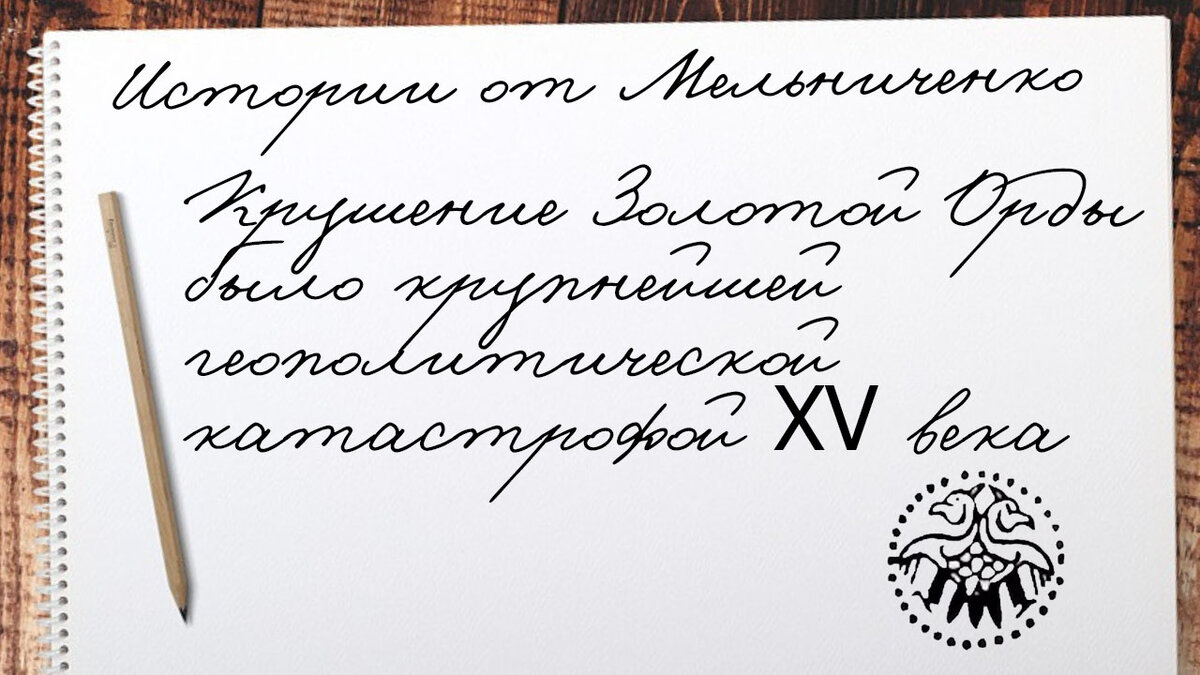 Истории от Мельниченко
Крушение Золотой Орды
было крупнейшей
геополитической
катастрофой XV века